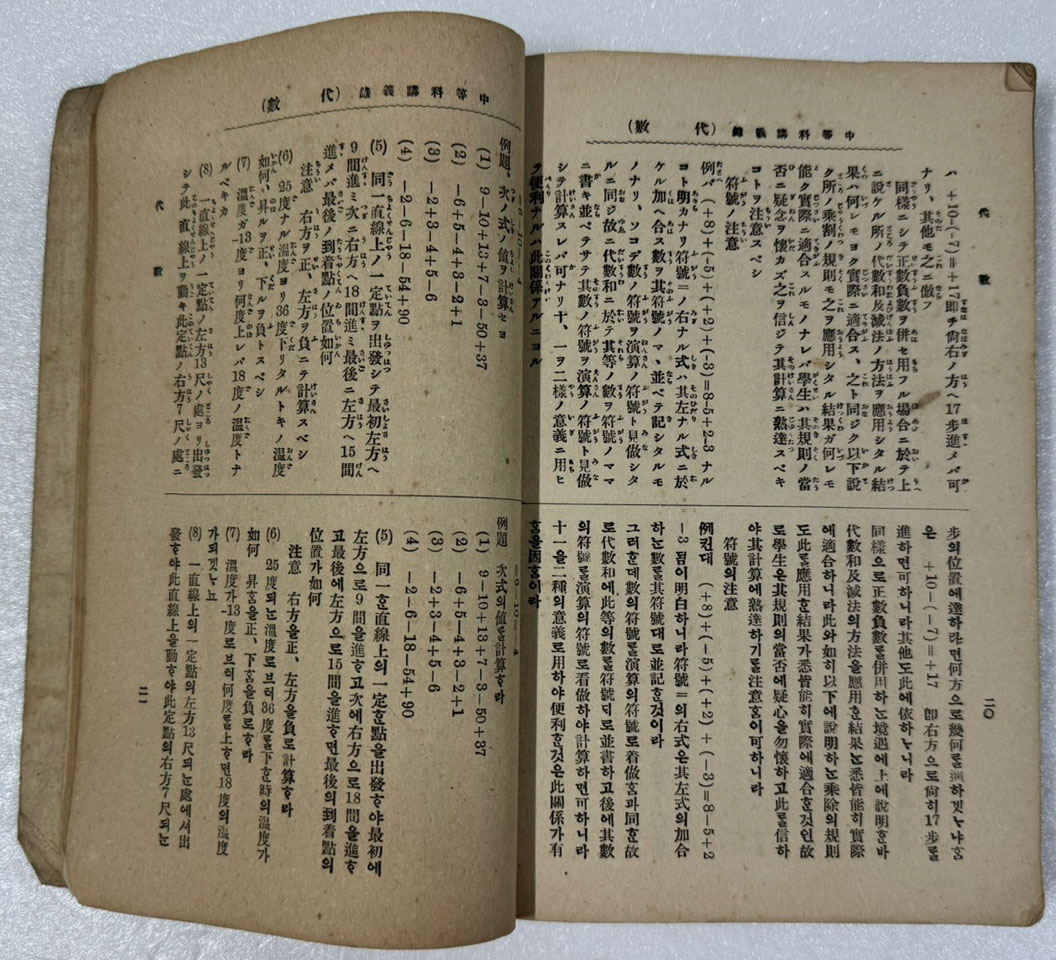 中等科講義錄（代　數）
代　數
ハ +10-(-7)=+17即チ尙右ノ方ヘ17步進メバ可
ナリ、其他モ之ニ倣フ
同樣ニシテ正數負數ヲ併セ用フル場合ニ於テ上
ニ說ケル所ノ代數和及減法ノ方法ヲ應用シタル結
果ハ何レモヨク實際ニ適合ス、之ト同ジク以下說
ク所ノ乘割ノ規則モ之ヲ應用シタル結果ガ何レモ
能ク實際ニ適合スルモノナレバ學生ハ其規則ノ當
否ニ疑念ヲ懷カズ之ヲ信ジテ其計算ニ熟達スベキ
コトヲ注意スベシ
符號ノ注意
例バ (+8)+(-5)+(+2)+(-3)=8-5+2-3 ナル
コト明カナリ符號=ノ右ナル式ハ其左ナル式ニ於
ケル加ヘ合ス數ヲ其符號ノマヽ並ベテ記シタルモ
ノナリ、ソコデ數ノ符號ヲ演算ノ符號ト見做シタ
ルニ同ジ故ニ代數和ニ於テ其等ノ數ヲ符號ノママ
ニ書キ並ベテサテ其數ノ符號ヲ演算ノ符號ト見做
シテ計算スレバ可ナリ十、一ヲ二樣ノ意義ニ用ヒ
テ便利ナルハ此關係アルニヨル
步의位置에達하랴면何方으로幾何를進하겟느냐홈
은 +10-(-7)=+17 卽右方으로尙히17步를
進하면可하니라其他도此에依하ᄂᆞ니라
同樣으로正數負數를併用하ᄂᆞᆫ境遇에上에說明ᄒᆞᆫ바
代數和及減法의方法을應用ᄒᆞᆫ結果ᄂᆞᆫ悉皆能히實際
에適合하니라此와如히以下에說明하ᄂᆞᆫ乘除의規則
도此를應用ᄒᆞᆫ結果가悉皆能히實際에適合ᄒᆞᆫ것인故
로學生은其規則의當否에疑心을勿懷하고此를信하
야其計算에熟達하기를注意홈이可하니라
符號의注意
例컨대 (+8)+(-5)+(+2)+(-3)=8-5+2
-3 됨이明白하니라符號=의右式은其左式의加合
하ᄂᆞᆫ數를其符號대로並記ᄒᆞᆫ것이라
그러ᄒᆞᆫ데數의符號를演算의符號로看做홈과同ᄒᆞᆫ故
로代數和에此等의數를符號ᄃᆡ로並書하고後에其數
의符號를演算의符號로看做하야計算하면可하니라
十一을二種의意義로用하야便利ᄒᆞᆫ것은此關係가有
홈을因홈이라
二〇
中等科講義錄（代　數）
例題、次ノ式ノ値ヲ計算セヨ
(1) 9-10+13+7-3-50+37
(2) -6+5-4+3-2+1
(3) -2+3-4+5-6
(4) -2-6-18-54+90
(5) 同一直線上ノ一定點ヲ出發シテ最初左方ヘ
9間進ミ次ニ右方ヘ18間進ミ最後ニ左方ヘ15間
進メバ最後ノ到着點ノ位置如何
注意　右方ヲ正、左方ヲ負ニテ計算スベシ
(6) 25度ナル溫度ヨリ36度下リタルトキノ溫度
如何、昇ルヲ正、下ルヲ負トスベシ
(7) 溫度ガ-13度ヨリ何度上レバ18度ノ溫度トナ
ルベキカ
(8) 一直線上ノ一定點ノ左方13尺ノ處ヨリ出發
シテ此直線上ヲ動キ此定點ノ右方7尺ノ處ニ
代　數
例題　次式의値를計算ᄒᆞ라
(1) 9-10+13+7-3-50+37
(2) -6+5-4+3-2+1
(3) -2+3-4+5-6
(4) -2-6-18-54+90
(5) 同一ᄒᆞᆫ直線上의一定ᄒᆞᆫ點을出發ᄒᆞ야最初에
左方으로9間을進ᄒᆞ고次에右方으로18間을進ᄒᆞ
고最後에左方으로15間을進ᄒᆞ면最後의到着點의
位置가如何
注意　右方을正、左方을負로計算ᄒᆞ라
(6) 25度되ᄂᆞᆫ溫度로브터36度를下ᄒᆞᆫ時의溫度가
如何　昇홈을正、下홈을負로ᄒᆞ라
(7) 溫度가-13度로브터何度를上ᄒᆞ면18度의溫度
가되겟ᄂᆞ뇨
(8) 一直線上의一定點의左方13尺되ᄂᆞᆫ處에셔出
發ᄒᆞ야此直線上을動ᄒᆞ야此定點의右方7尺되ᄂᆞᆫ
二一